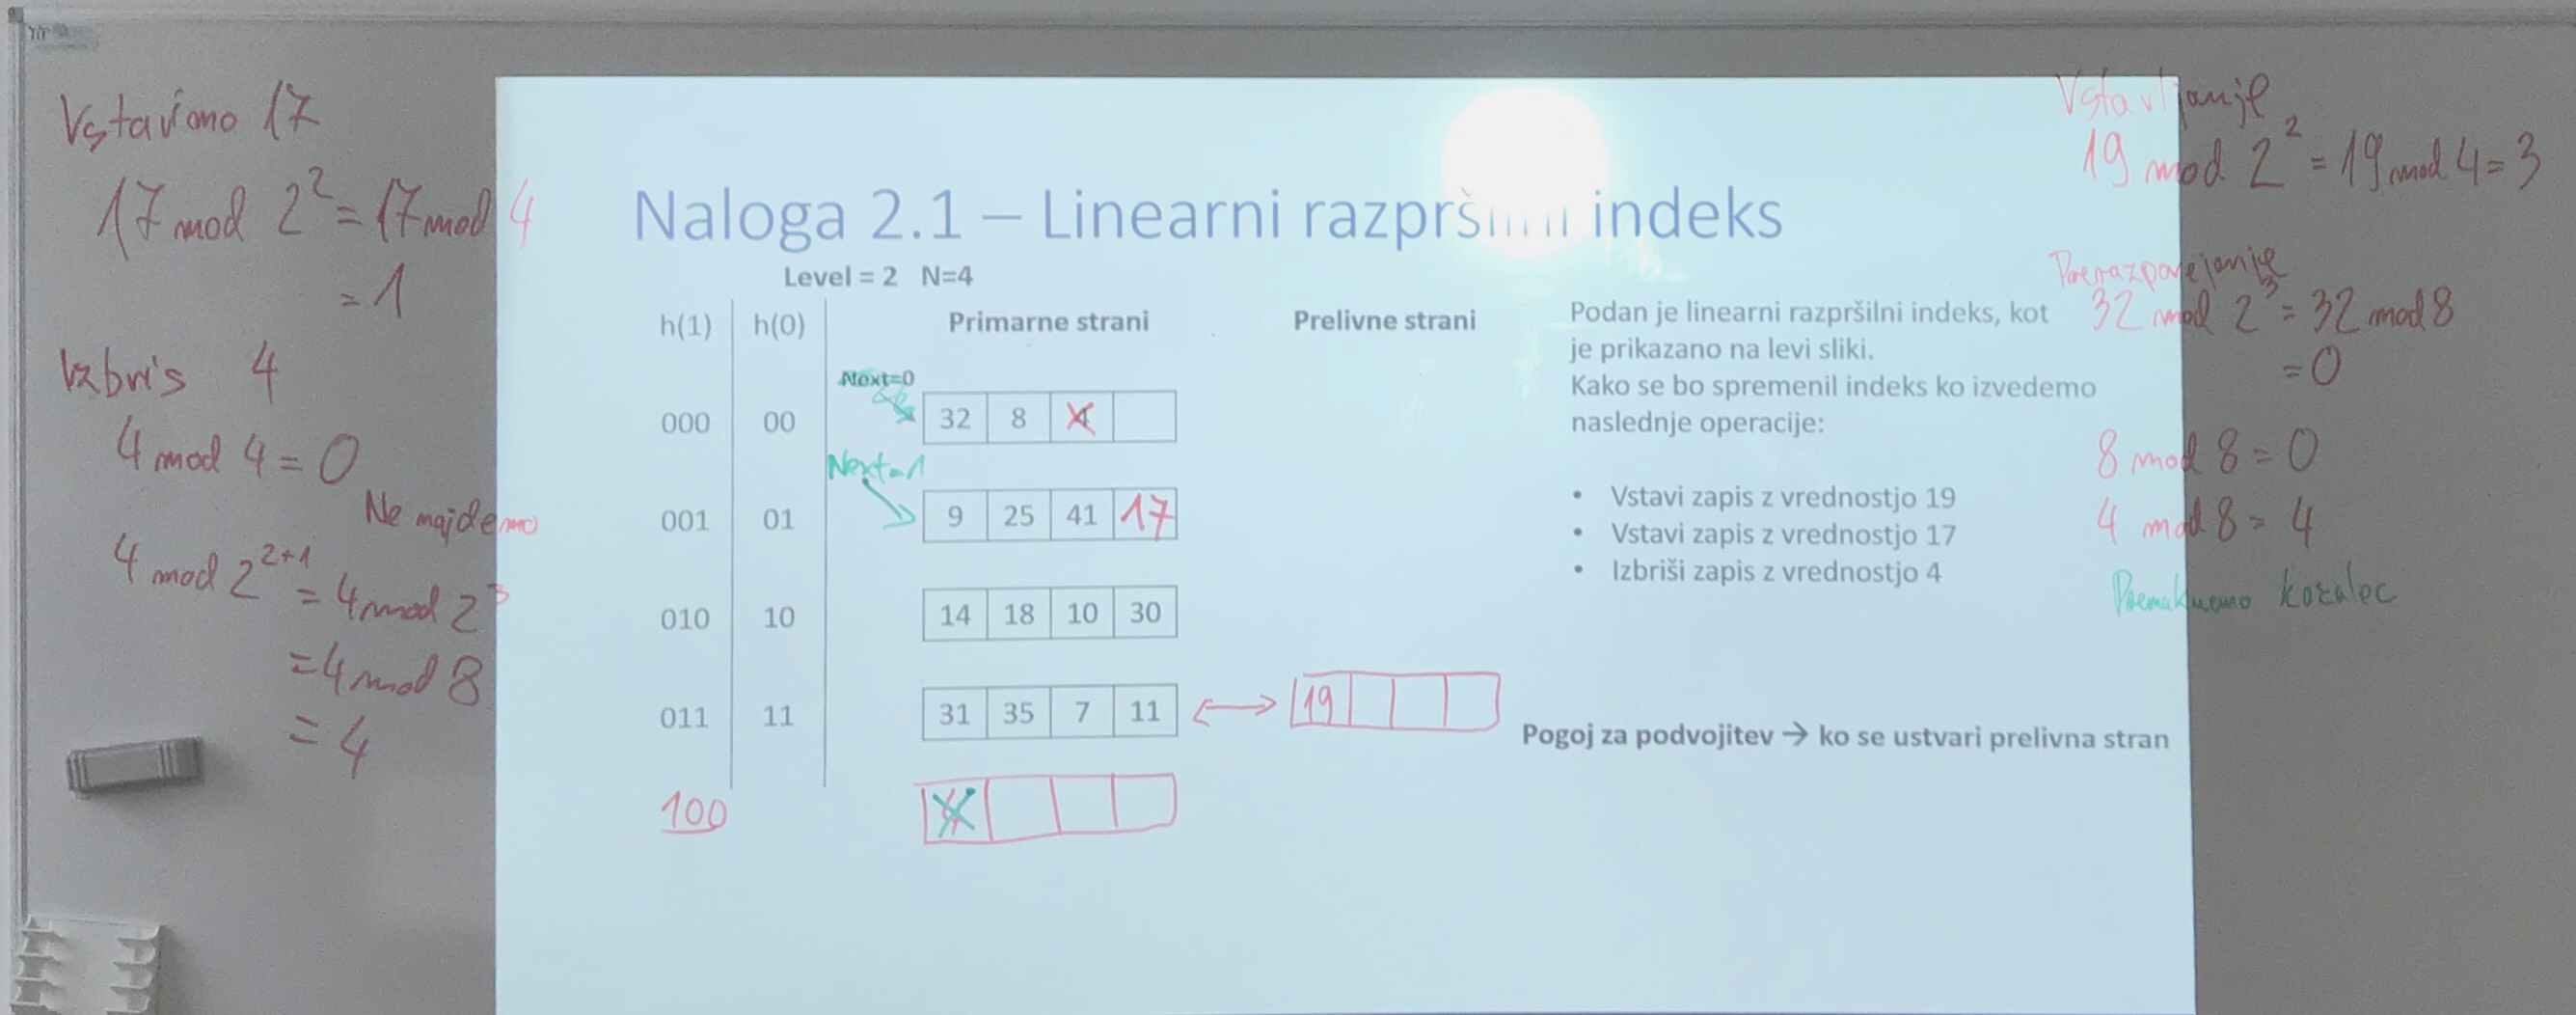 Vstavimo 17
17 mod 2² = 17 mod 4
= 1
Izbris 4
4 mod 4 = 0
Ne najdemo
4 mod 2²⁺¹ = 4 mod 2³
= 4 mod 8
= 4
Naloga 2.1 – Linearni razpršilni indeks
Level = 2 N=4
h(1) h(0) Primarne strani Prelivne strani
Next=0
000 00 32 8 4
Next=1
001 01 9 25 41 17
010 10 14 18 10 30
011 11 31 35 7 11 19
100 4
Podan je linearni razpršilni indeks, kot
je prikazano na levi sliki.
Kako se bo spremenil indeks ko izvedemo
naslednje operacije:
• Vstavi zapis z vrednostjo 19
• Vstavi zapis z vrednostjo 17
• Izbriši zapis z vrednostjo 4
Pogoj za podvojitev → ko se ustvari prelivna stran
Vstavljanje
19 mod 2² = 19 mod 4 = 3
32 mod 2³ = 32 mod 8
= 0
8 mod 8 = 0
4 mod 8 = 4
Premaknemo kazalec